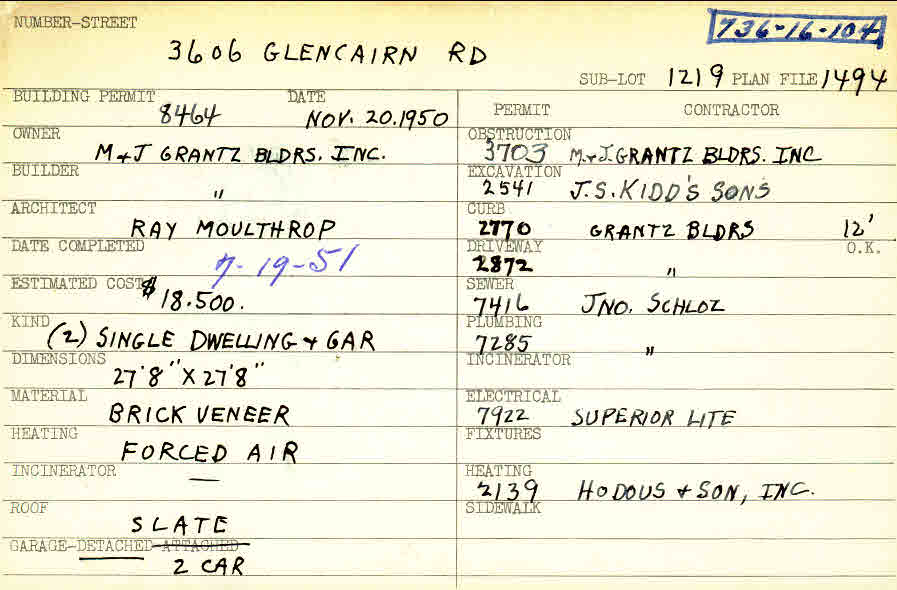 NUMBER-STREET
736-16-104
3606 GLENCAIRN RD
SUB-LOT 1219 PLAN FILE 1494
BUILDING PERMIT DATE
8464 NOV. 20.1950
PERMIT CONTRACTOR
OWNER
M+J GRANTZ BLDRS. INC.
OBSTRUCTION
3703 M.+J. GRANTZ BLDRS. INC
BUILDER
"
EXCAVATION
2541 J.S. KIDD'S SONS
ARCHITECT
RAY MOULTHROP
CURB
2770 GRANTZ BLDRS 12'
DATE COMPLETED
7-19-51
DRIVEWAY O.K.
2872 "
ESTIMATED COST
$18.500.
SEWER
7416 JNO. SCHLOZ
KIND
(2) SINGLE DWELLING + GAR
PLUMBING
7285 "
DIMENSIONS
27'8" X 27'8"
INCINERATOR
MATERIAL
BRICK VENEER
ELECTRICAL
7922 SUPERIOR LITE
HEATING
FORCED AIR
FIXTURES
INCINERATOR
—
HEATING
2139 HODOUS + SON, INC.
ROOF
SLATE
SIDEWALK
GARAGE-DETACHED-ATTACHED
2 CAR